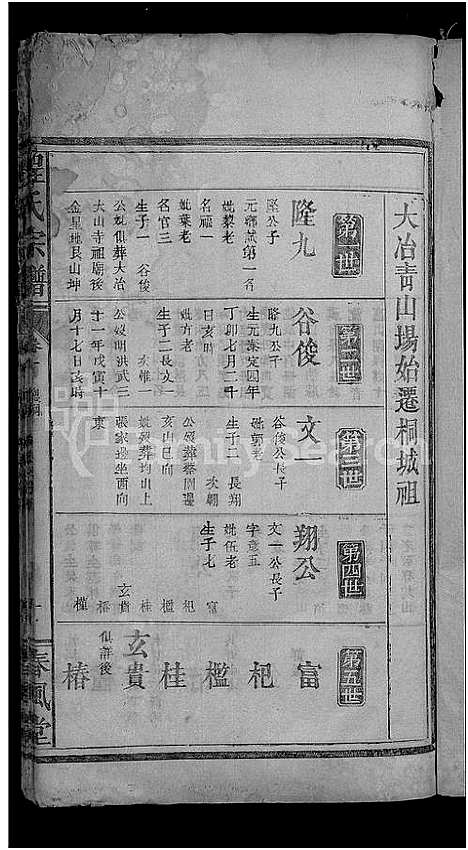 大冶青山場始遷桐城祖
第一世
隆九
隆公子
元鄉試第一名
妣黎老
名福一
妣葉老
名官三
生子一 谷俊
公妣俱葬大冶
大山寺祖廟後
金星地艮山坤
第二世
谷俊
隆九公子
生元泰定四年
丁卯七月二十
日亥時
妣方老
生子二 長文一
次惟一
公歿明洪武三
十一年戊寅十
月十七日亥時
第三世
文一
谷俊公長子
妣胡老
生子二 長翔
次朝
公歿葬
亥山巳向
妣歿葬均山上
張家塝坐酉向
東
第四世
翔公
文一公長子
字意五
妣伍老
生子七 富
杞
檻
桂
玄貴
梧
椿
第五世
富
杞
檻
桂
玄貴
仙譜後
椿
氏宗譜
春風堂